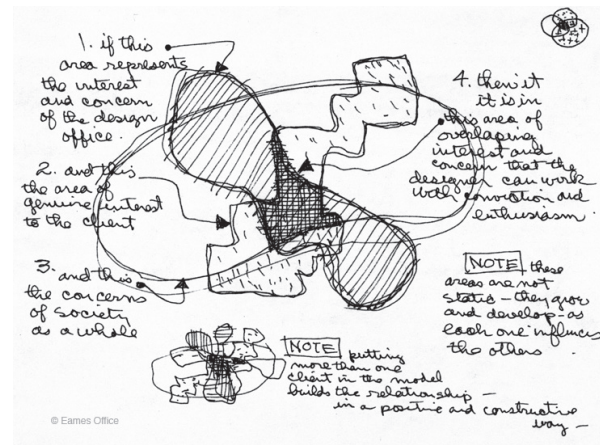 1. if this
area represents
the interest
and concern
of the design
office.
2. and this
the area of
genuine interest
to the client
3. and this
the concerns
of society
as a whole
4. then it
it is in
this area of
overlaping
interest and
concern that the
designer can work
with conviction and
enthusiasm.
NOTE these
areas are not
static – they grow
and develop – as
each one influences
the others.
NOTE putting
more than one
client in the model
builds the relationship –
in a positive and constructive
way –
© Eames Office